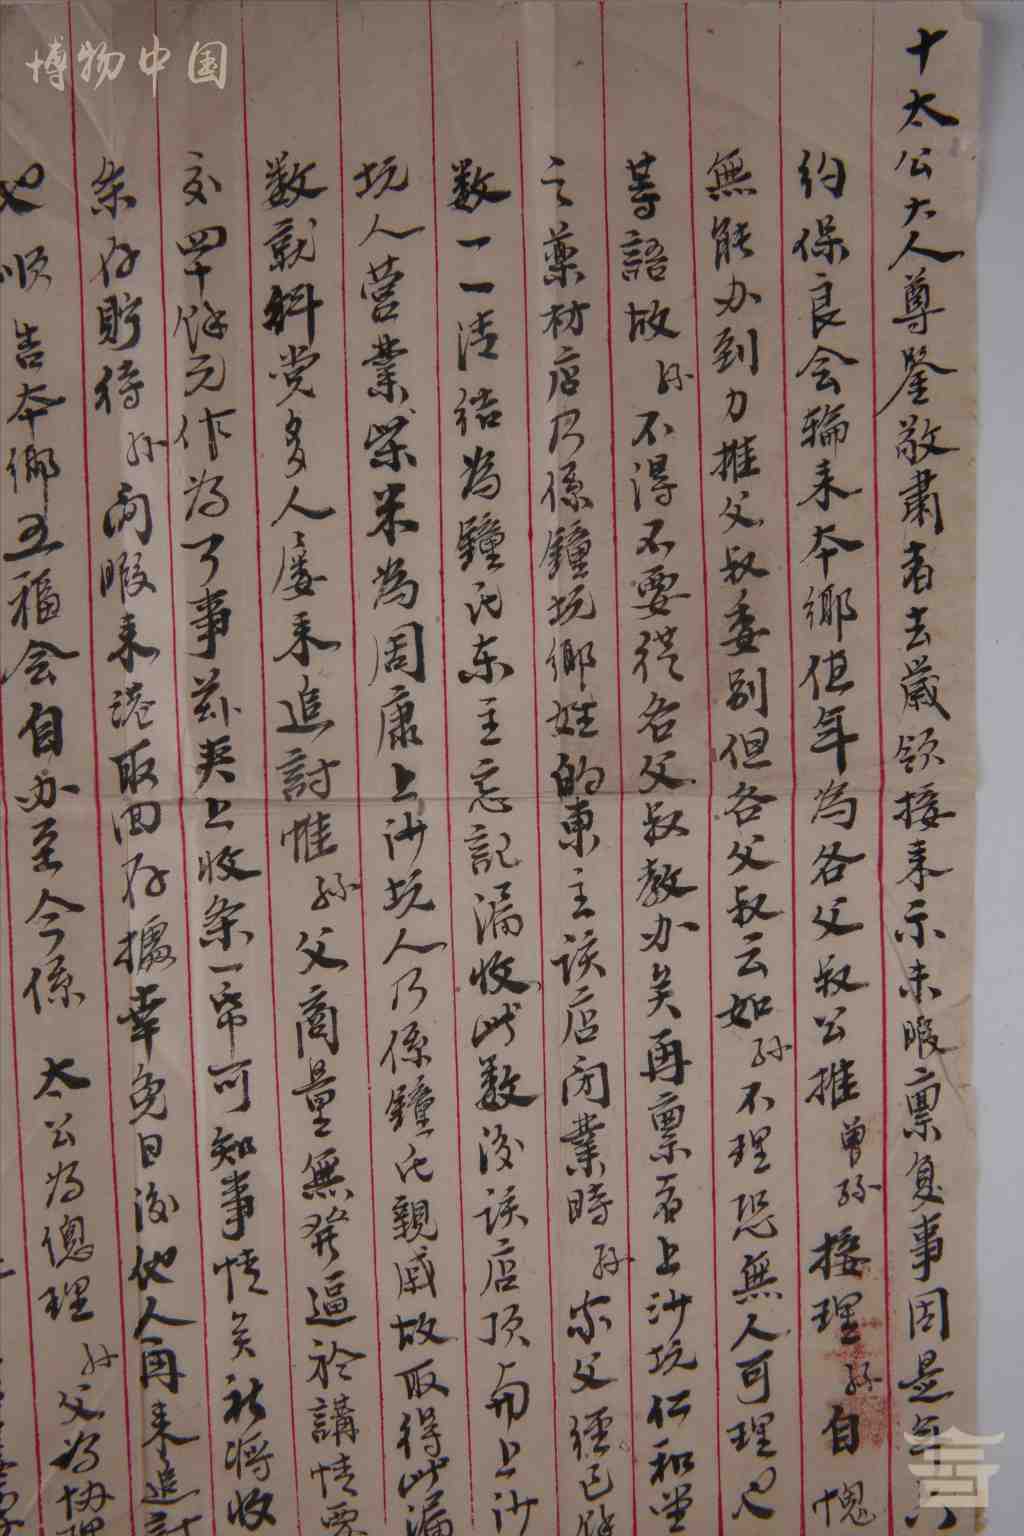 博物中国
十太公大人尊鉴敬肃者去歲领接来示未暇禀复事因是年
约保良会輪来本鄉但年為各父叔公推曾孙接理孙自愧
無能办到力推父叔委别但各父叔云如孙不理恐無人可理
等語故孙不得不要從各父叔教办矣再禀者上沙坑仁和堂
之藥材店乃係鐘坑鄉姓的東主该店闭業時孙家父經已
数一一清结為鐘氏东主忘記漏收此数後该店顶与上沙
坑人营業柴米為周康上沙坑人乃係鐘氏親戚故取得此漏
数就料党多人屡来追討惟孙父商量無発逼於講情要
交四十餘元作為了事兹夹上收条一帋可知事情矣祈将收
条存貯待孙闲暇来港取回存據幸免日後他人再来追討
也順告本鄉五福会自办至今係太公為總理孙父為协理